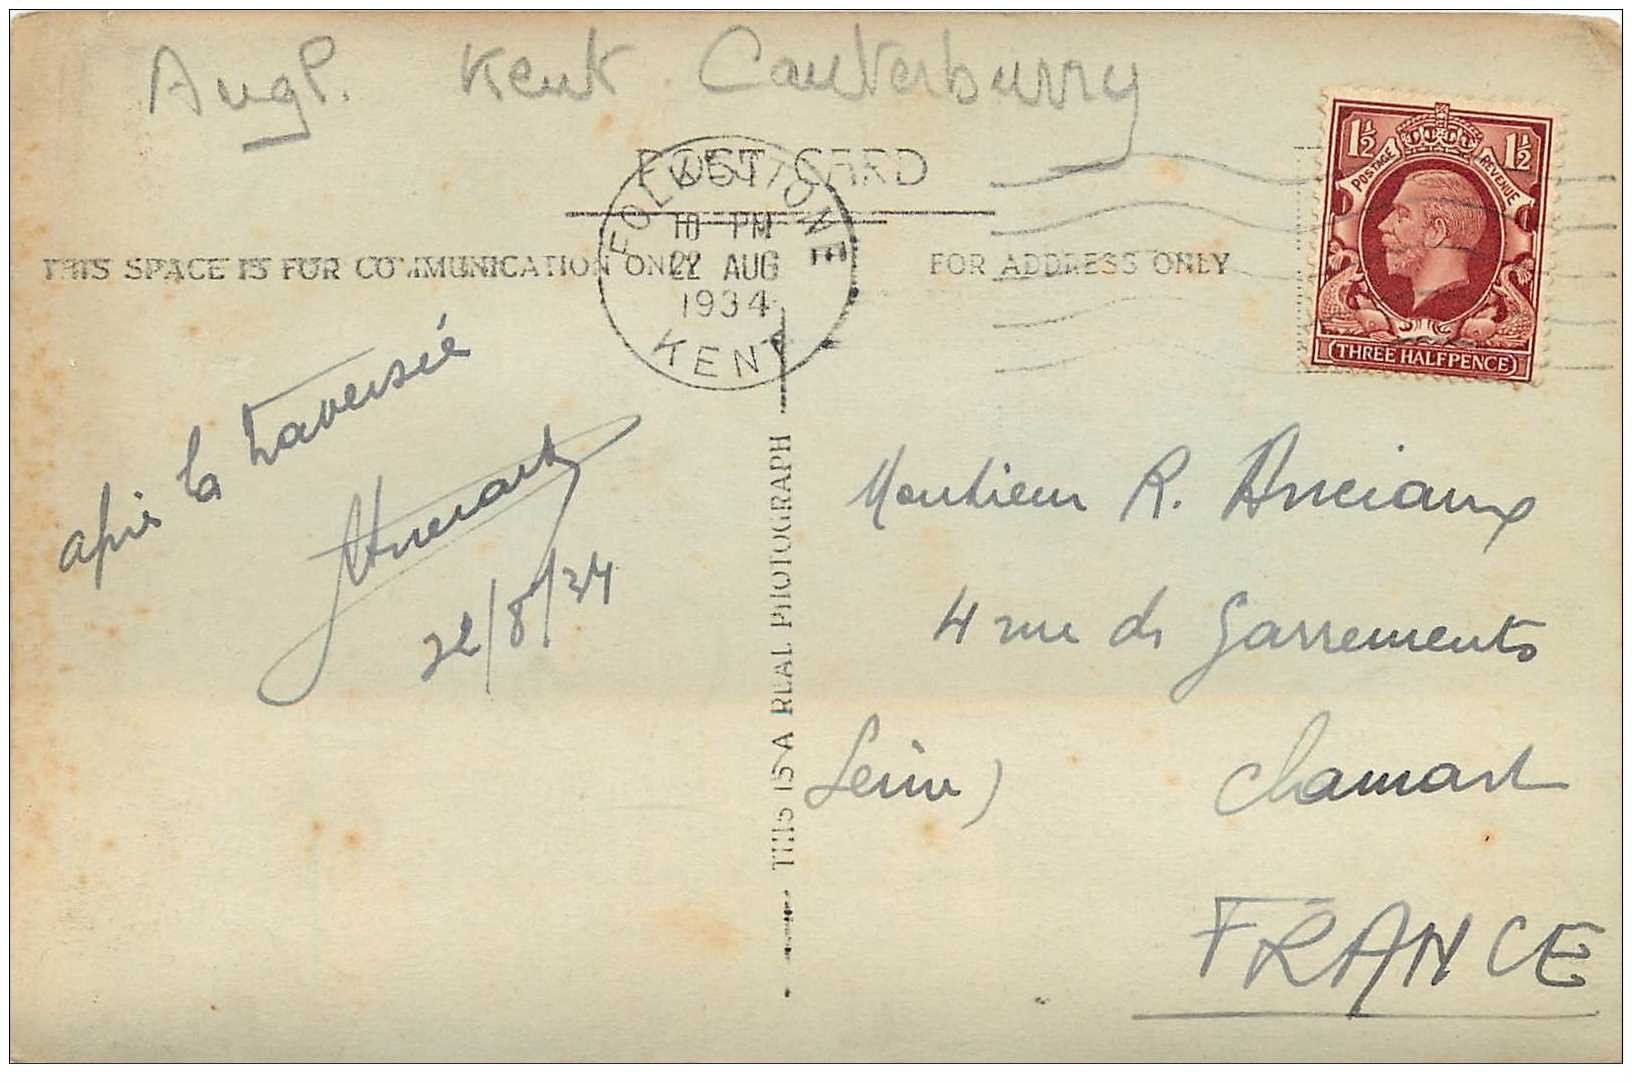 Angl. Kent Canterburry
POST CARD
FOLKESTONE
10 PM
22 AUG
1934
KENT
THIS SPACE IS FOR COMMUNICATION ONLY
FOR ADDRESS ONLY
1½ 1½
POSTAGE REVENUE
THREE HALFPENCE
après la traversée
22/8/34
THIS IS A REAL PHOTOGRAPH
Monsieur R. Anciaux
4 rue de
Seine) Clamart
FRANCE